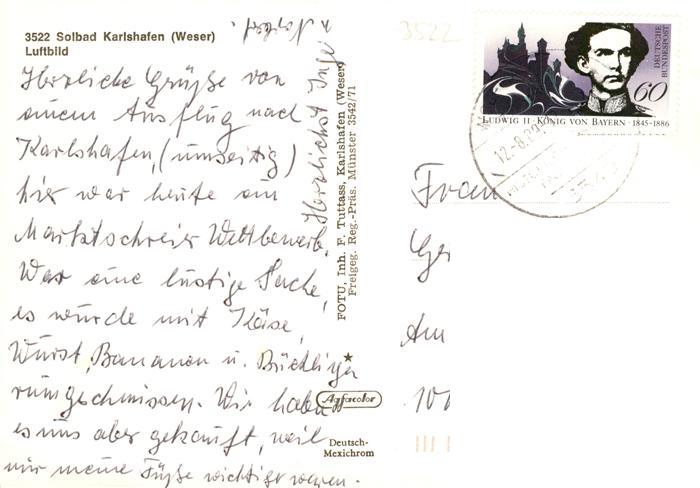 3522 Solbad Karlshafen (Weser)
Luftbild
Herzliche Grüße von
einem Ausflug nach
Karlshafen, (umseitig)
hier war heute ein
Marktschreier Wettbewerb.
War eine lustige Sache,
es wurde mit Käse,
Wurst, Bananen u. Bücklinge
rumgeschmissen. Wir haben
es uns aber gekauft, weil
mir meine Füße wichtiger waren.
Herzlichst Inge
FOTU, Inh. F. Tuttass, Karlshafen (Weser)
Freigeg. Reg.-Präs. Münster 3542/71
Agfacolor
Deutsch-
Mexichrom
3522
DEUTSCHE
BUNDESPOST
60
LUDWIG II · KÖNIG VON BAYERN · 1845-1886
Frau
Am